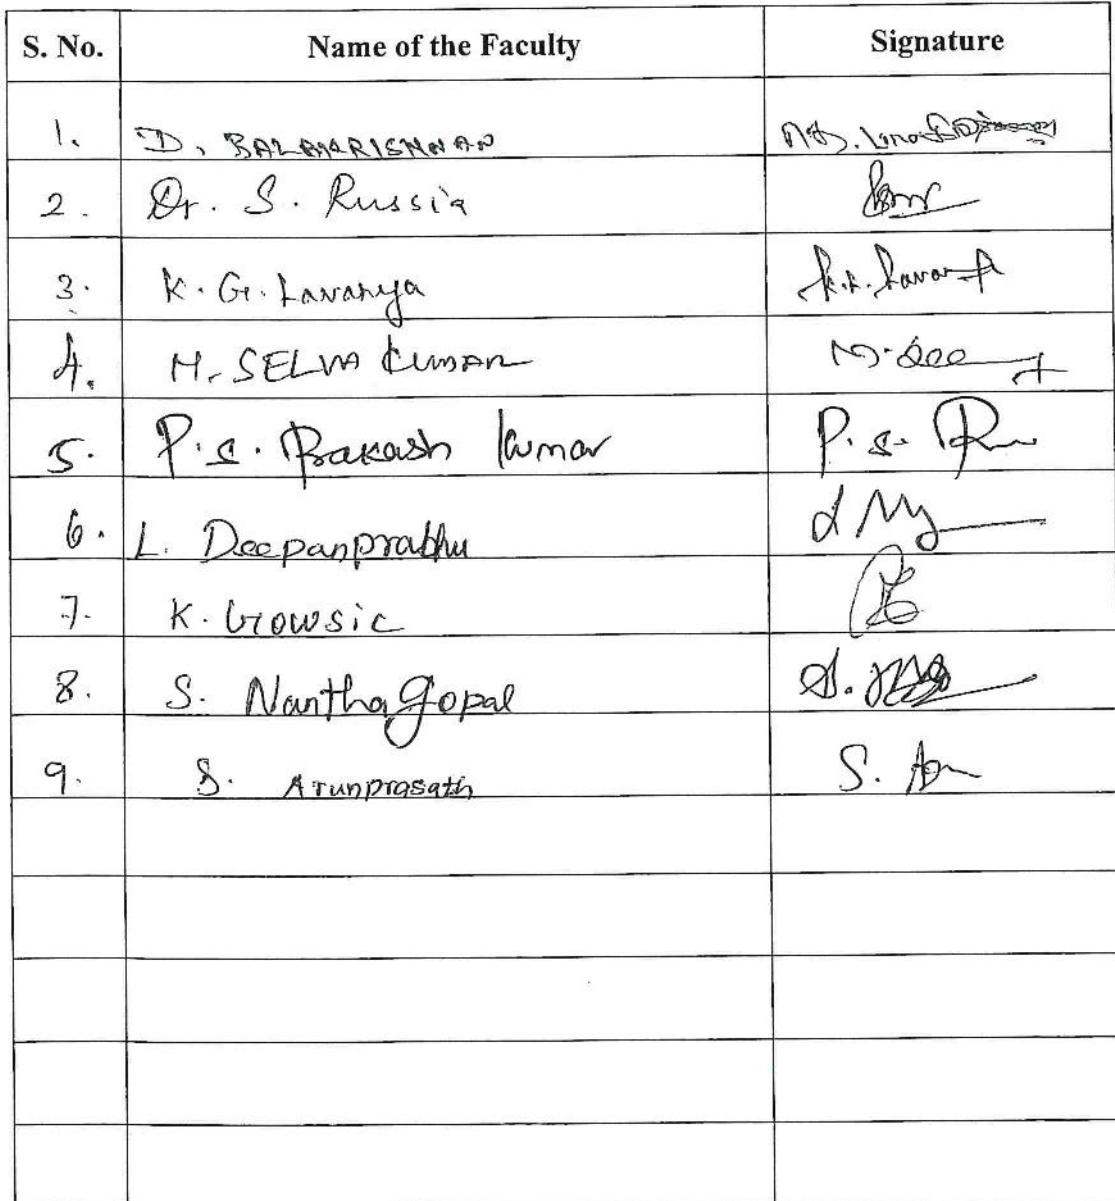 S. No. Name of the Faculty Signature
1. D. BALAKRISHNAN
2. Dr. S. Russia
3. K. G. Lavanya
4. M. SELVA KUMAR
5. P. S. Prakash Kumar P. S.
6. L. Deepanprabhu
7. K. Gowsic
8. S. Nantha Gopal S.
9. S. Arunprasath S.